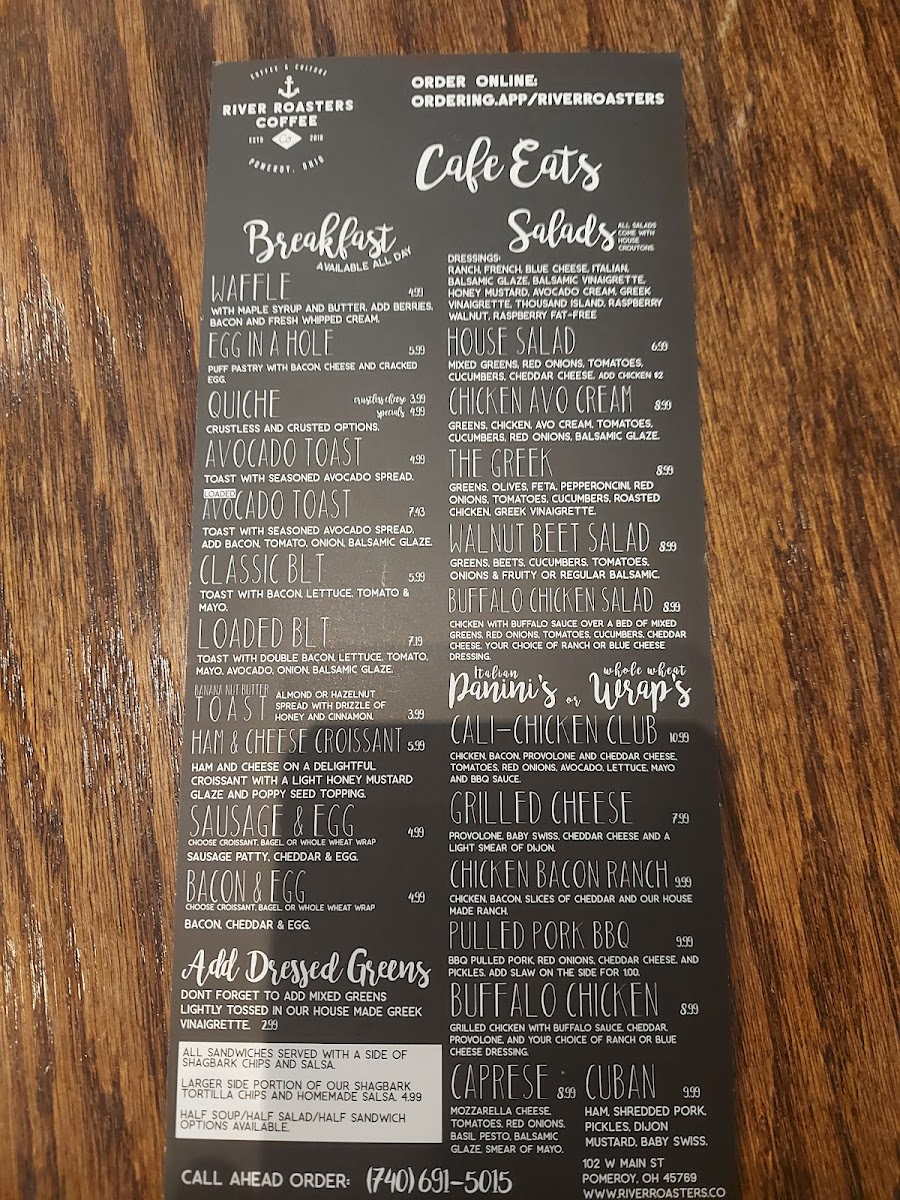 COFFEE & CULTURE
RIVER ROASTERS
COFFEE
ESTD Co 2018
POMEROY, OHIO
ORDER ONLINE:
ORDERING.APP/RIVERROASTERS
Cafe Eats
Breakfast
AVAILABLE ALL DAY
WAFFLE 4.99
WITH MAPLE SYRUP AND BUTTER, ADD BERRIES,
BACON AND FRESH WHIPPED CREAM.
EGG IN A HOLE 5.99
PUFF PASTRY WITH BACON, CHEESE AND CRACKED
EGG.
QUICHE crustless cheese 3.99
specials 4.99
CRUSTLESS AND CRUSTED OPTIONS.
AVOCADO TOAST 4.99
TOAST WITH SEASONED AVOCADO SPREAD.
LOADED
AVOCADO TOAST 7.43
TOAST WITH SEASONED AVOCADO SPREAD,
ADD BACON, TOMATO, ONION, BALSAMIC GLAZE.
CLASSIC BLT 5.99
TOAST WITH BACON, LETTUCE, TOMATO &
MAYO.
LOADED BLT 7.19
TOAST WITH DOUBLE BACON, LETTUCE, TOMATO,
MAYO, AVOCADO, ONION, BALSAMIC GLAZE.
BANANA NUT BUTTER
TOAST 3.99
ALMOND OR HAZELNUT
SPREAD WITH DRIZZLE OF
HONEY AND CINNAMON.
HAM & CHEESE CROISSANT 5.99
HAM AND CHEESE ON A DELIGHTFUL
CROISSANT WITH A LIGHT HONEY MUSTARD
GLAZE AND POPPY SEED TOPPING.
SAUSAGE & EGG 4.99
CHOOSE CROISSANT, BAGEL, OR WHOLE WHEAT WRAP
SAUSAGE PATTY, CHEDDAR & EGG.
BACON & EGG 4.99
CHOOSE CROISSANT, BAGEL, OR WHOLE WHEAT WRAP
BACON, CHEDDAR & EGG.
Add Dressed Greens
DONT FORGET TO ADD MIXED GREENS
LIGHTLY TOSSED IN OUR HOUSE MADE GREEK
VINAIGRETTE. 2.99
ALL SANDWICHES SERVED WITH A SIDE OF
SHAGBARK CHIPS AND SALSA.
LARGER SIDE PORTION OF OUR SHAGBARK
TORTILLA CHIPS AND HOMEMADE SALSA. 4.99
HALF SOUP/HALF SALAD/HALF SANDWICH
OPTIONS AVAILABLE.
Salads
ALL SALADS
COME WITH
HOUSE
CROUTONS.
DRESSINGS:
RANCH, FRENCH, BLUE CHEESE, ITALIAN,
BALSAMIC GLAZE, BALSAMIC VINAIGRETTE,
HONEY MUSTARD, AVOCADO CREAM, GREEK
VINAIGRETTE, THOUSAND ISLAND, RASPBERRY
WALNUT, RASPBERRY FAT-FREE
HOUSE SALAD 6.99
MIXED GREENS, RED ONIONS, TOMATOES,
CUCUMBERS, CHEDDAR CHEESE. ADD CHICKEN $2
CHICKEN AVO CREAM 8.99
GREENS, CHICKEN, AVO CREAM, TOMATOES,
CUCUMBERS, RED ONIONS, BALSAMIC GLAZE.
THE GREEK 8.99
GREENS, OLIVES, FETA, PEPPERONCINI, RED
ONIONS, TOMATOES, CUCUMBERS, ROASTED
CHICKEN, GREEK VINAIGRETTE.
WALNUT BEET SALAD 8.99
GREENS, BEETS, CUCUMBERS, TOMATOES,
ONIONS & FRUITY OR REGULAR BALSAMIC.
BUFFALO CHICKEN SALAD 8.99
CHICKEN WITH BUFFALO SAUCE OVER A BED OF MIXED
GREENS, RED ONIONS, TOMATOES, CUCUMBERS, CHEDDAR
CHEESE. YOUR CHOICE OF RANCH OR BLUE CHEESE
DRESSING.
Italian Panini's or whole wheat Wrap's
CALI-CHICKEN CLUB 10.99
CHICKEN, BACON, PROVOLONE AND CHEDDAR CHEESE,
TOMATOES, RED ONIONS, AVOCADO, LETTUCE, MAYO
AND BBQ SAUCE.
GRILLED CHEESE 7.99
PROVOLONE, BABY SWISS, CHEDDAR CHEESE AND A
LIGHT SMEAR OF DIJON.
CHICKEN BACON RANCH 9.99
CHICKEN, BACON, SLICES OF CHEDDAR AND OUR HOUSE
MADE RANCH.
PULLED PORK BBQ 9.99
BBQ PULLED PORK, RED ONIONS, CHEDDAR CHEESE, AND
PICKLES, ADD SLAW ON THE SIDE FOR 1.00.
BUFFALO CHICKEN 8.99
GRILLED CHICKEN WITH BUFFALO SAUCE, CHEDDAR,
PROVOLONE, AND YOUR CHOICE OF RANCH OR BLUE
CHEESE DRESSING.
CAPRESE 8.99
MOZZARELLA CHEESE,
TOMATOES, RED ONIONS,
BASIL PESTO, BALSAMIC
GLAZE, SMEAR OF MAYO.
CUBAN 9.99
HAM, SHREDDED PORK,
PICKLES, DIJON
MUSTARD, BABY SWISS.
CALL AHEAD ORDER: (740) 691-5015
102 W MAIN ST
POMEROY, OH 45769
WWW.RIVERROASTERS.CO